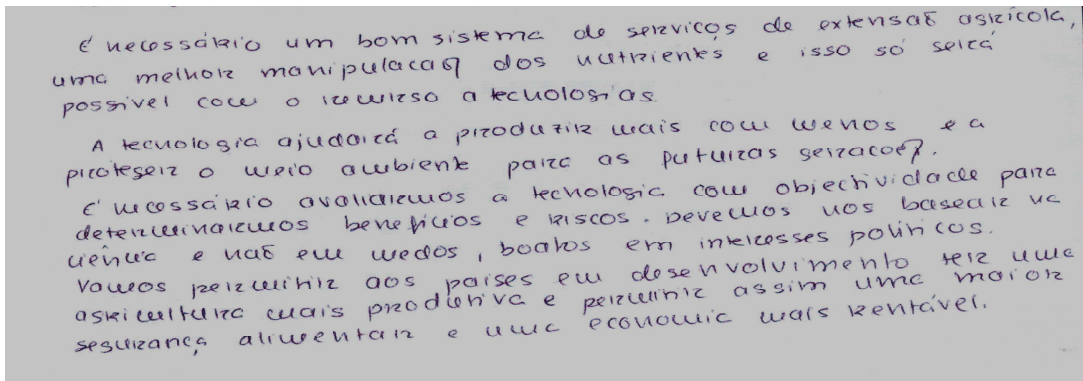 É necessário um bom sistema de serviços de extensaõ agrícola,
uma melhor manipulacaõ dos nutrientes e isso só será
possivel com o recurso a tecnologias
A tecnologia ajudará a produzir mais com menos e a
proteger o meio ambiente para as futuras geracoes.
É necessário avaliarmos a tecnologia com objectividade para
determinarmos benefícios e riscos. Devemos nos basear na
ciência e naõ em medos, boatos em interesses politicos.
Vamos permitir aos paises em desenvolvimento ter uma
agricultura mais produtiva e permitir assim uma maior
segurança alimentar e uma economia mais rentável.